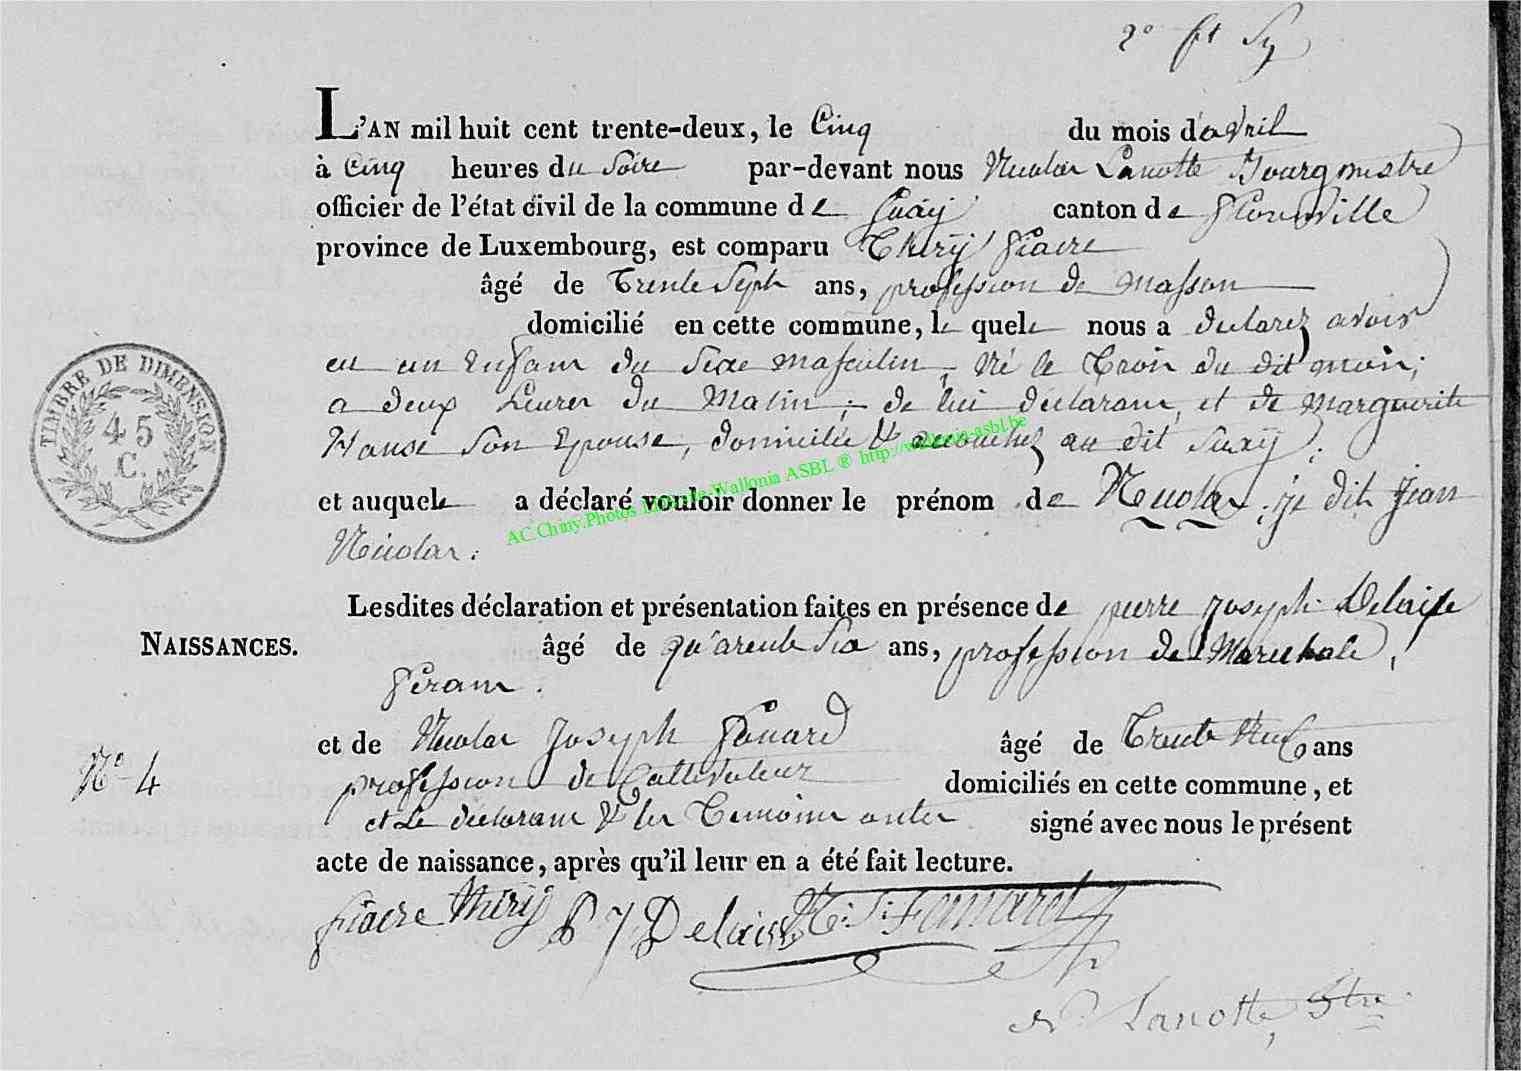 2° ft Sy
L'AN mil huit cent trente-deux, le Cinq du mois d'avril
à Cinq heures du Soire par-devant nous Nicolas Lanotte Bourgmestre
officier de l'état civil de la commune de Suxÿ canton de florenville
province de Luxembourg, est comparu Thirÿ fiacre
âgé de Trente Seph ans, profession de Masson
domicilié en cette commune, le quele nous a declarez avoir
eu un Enfam du Sexe Masculin, Né le Trois du dit mois;
a deux heures du Matin; de lui declaram, et de Marguerite
Hanse Son Epouse, domicilée & accouchez au dit Suxÿ;
et auquele a déclaré vouloir donner le prénom de Nicolas; je dit Jean
Nicolas.
AC.Chiny.Photos Luxroots-Wallonia ASBL ® http://wallonia-asbl.be
TIMBRE DE DIMENSION
45
C.
Lesdites déclaration et présentation faites en présence de pierre Joseph Delaisse
NAISSANCES.
âgé de qu'arente Six ans, profession de Marechale,
feram.
et de Nicolas Joseph fonard âgé de Trente Neuf ans
N° 4
profession de Cultivateur domiciliés en cette commune, et
et Le declaram & les Temoins ontes signé avec nous le présent
acte de naissance, après qu'il leur en a été fait lecture.
fiacre thirÿ P J Delaisse N: J: Fonard
N. Lanotte, Btre